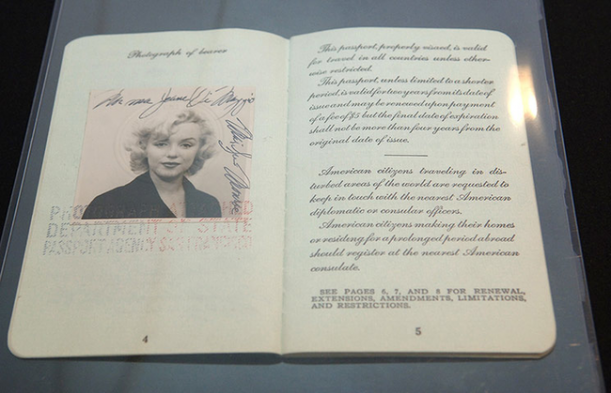 Photograph of bearer
Norma Jeane Di Maggio
PHOTOGRAPH ATTACHED
DEPARTMENT OF STATE
PASSPORT AGENCY SAN FRANCISCO
4
This passport, properly visaed, is valid
for travel in all countries unless other-
wise restricted.
This passport, unless limited to a shorter
period, is valid for two years from its date of
issue and may be renewed upon payment
of a fee of $5 but the final date of expiration
shall not be more than four years from the
original date of issue.
American citizens traveling in dis-
turbed areas of the world are requested to
keep in touch with the nearest American
diplomatic or consular officers.
American citizens making their homes
or residing for a prolonged period abroad
should register at the nearest American
consulate.
SEE PAGES 6, 7, AND 8 FOR RENEWAL,
EXTENSIONS, AMENDMENTS, LIMITATIONS,
AND RESTRICTIONS.
5